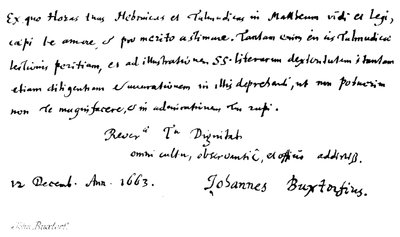 Ex quo Horas tuas Hebraicas et Talmudicas in Matthaeum vidi et legi,
cœpi te amare, & pro merito æstimare. Tantam enim in eis Talmudicæ
lectionis peritiam, et ad illustrationem SS. literarum dexteritatem, tantam
etiam diligentiam & accurationem in illis deprehendi, ut non potuerim
non te magnifacere, & in admirationem tui rapi.
Rever.ᵃ T.ᵃ Dignitat.
omni cultu, observantiâ, et officiis addictiss.
12 Decemb. Ann. 1663. Johannes Buxtorfius.
John Buxtorf.